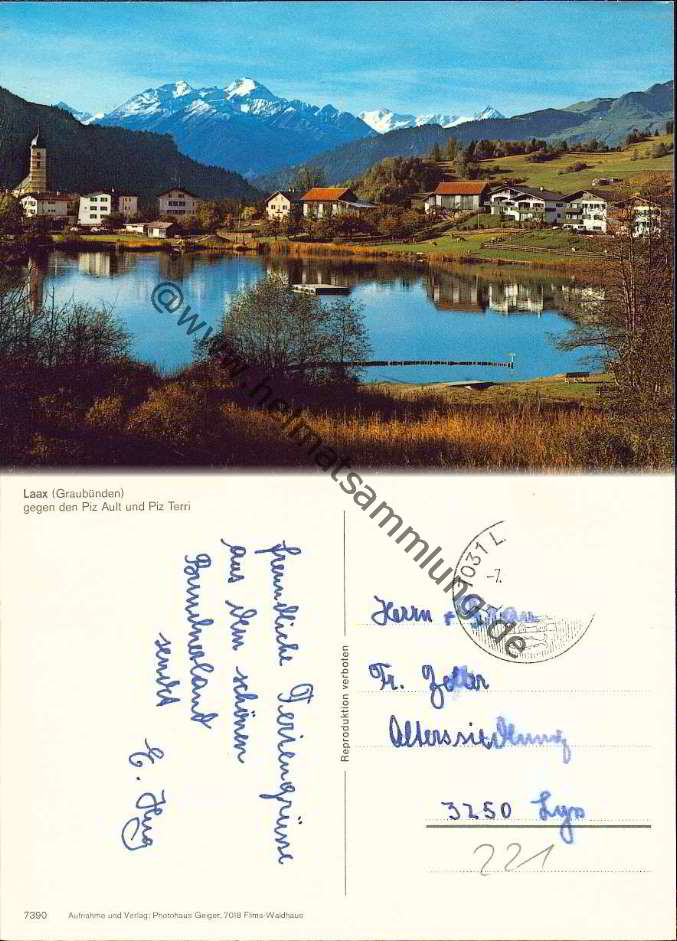 @www.heimatsammlung.de
Laax (Graubünden)
gegen den Piz Ault und Piz Terri
freundliche Feriengrüsse
aus dem schönen
Bündnerland
sendet
E. Hug
Reproduktion verboten
7031 L
-7.
Herrn + Frau
Fr. Zoller
Alterssiedlung
3250 Lyss
221
7390 Aufnahme und Verlag: Photohaus Geiger, 7018 Flims-Waldhaus